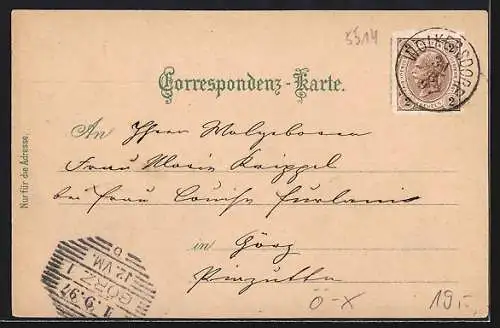 5514
WOLKERSDORF
2 2
Correspondenz-Karte.
Nur für die Adresse.
An Ihrer Wolgeboren
Frau Marie Krippel
bei Frau Louise Furlani
in Görz
Piazzutta
GÖRZ 1
1.9.97
12.VM.
Ö-X
19.-